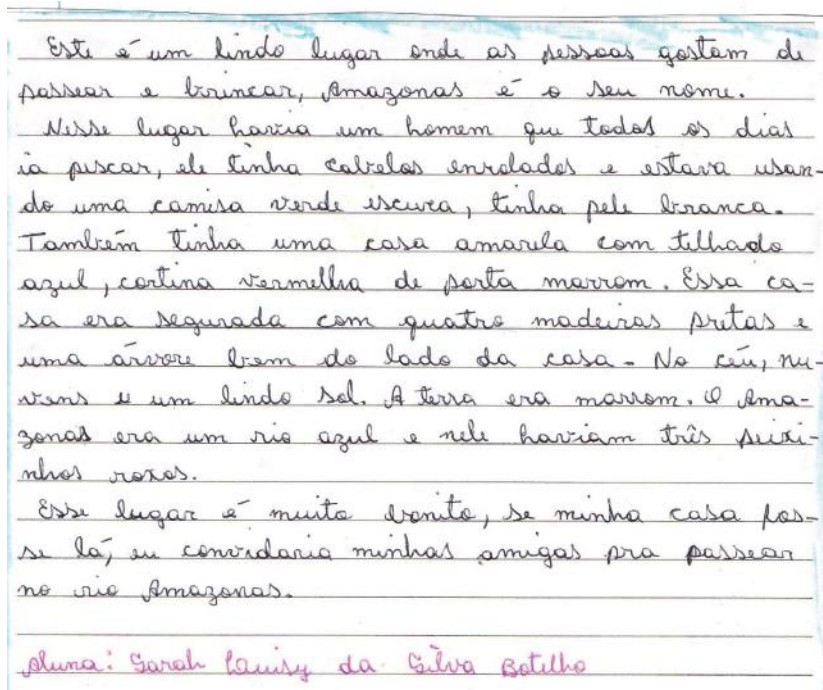 Este é um lindo lugar onde as pessoas gostam de
passear e brincar, Amazonas é o seu nome.
Nesse lugar havia um homem que todos os dias
ia pescar, ele tinha cabelos enrolados e estava usan-
do uma camisa verde escura, tinha pele branca.
Também tinha uma casa amarela com telhado
azul, cortina vermelha de porta marrom. Essa ca-
sa era segurada com quatro madeiras pretas e
uma árvore bem do lado da casa. No céu, nu-
vens e um lindo sol. A terra era marrom. O Ama-
zonas era um rio azul e nele haviam três peixi-
nhos roxos.
Esse lugar é muito bonito, se minha casa fos-
se lá, eu convidaria minhas amigas pra passear
no rio Amazonas.
Aluna: Sarah Louisy da Silva Botelho